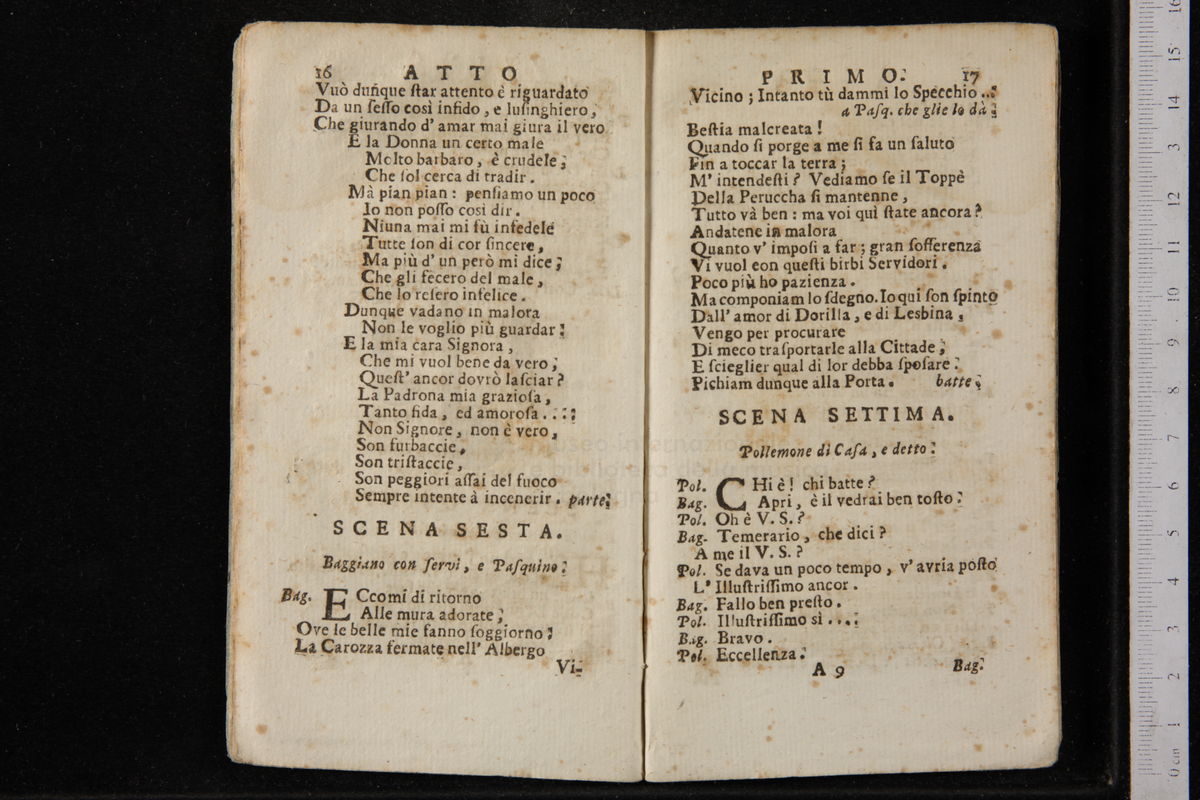 16 ATTO
Vuò dunque ſtar attento è riguardato
Da un ſeſſo così infido, e luſinghiero,
Che giurando d' amar mai giura il vero
E la Donna un certo male
Molto barbaro, è crudele;
Che ſol cerca di tradir.
Mà pian pian: penſiamo un poco
Io non poſſo così dir.
Niuna mai mi fù infedele
Tutte ſon di cor ſincere,
Ma più d' un però mi dice;
Che gli fecero del male,
Che lo reſero infelice.
Dunque vadano in malora
Non le voglio più guardar:
E la mia cara Signora,
Che mi vuol bene da vero;
Queſt' ancor dovrò laſciar?
La Padrona mia grazioſa,
Tanto fida, ed amoroſa....
Non Signore, non è vero,
Son furbaccie,
Son triſtaccie,
Son peggiori aſſai del fuoco
Sempre intente à incenerir. parte.
SCENA SESTA.
Baggiano con ſervi, e Paſquino.
Bag. ECcomi di ritorno
Alle mura adorate;
Ove le belle mie fanno ſoggiorno;
La Carozza fermate nell' Albergo
Vi-
PRIMO. 17
Vicino; Intanto tù dammi lo Specchio...
a Paſq. che glie lo dà;
Beſtia malcreata!
Quando ſi porge a me ſi fa un ſaluto
Fin a toccar la terra;
M' intendeſti? Vediamo ſe il Toppè
Della Peruccha ſi mantenne,
Tutto và ben: ma voi quì ſtate ancora?
Andatene in malora
Quanto v' impoſi a far; gran ſofferenza
Vi vuol eon queſti birbi Servidori.
Poco più ho pazienza.
Ma componiam lo ſdegno. Io qui ſon ſpinto
Dall' amor di Dorilla, e di Lesbina,
Vengo per procurare
Di meco traſportarle alla Cittade;
E ſcieglier qual di lor debba ſpoſare:
Pichiam dunque alla Porta. batte.
SCENA SETTIMA.
Pollemone di Caſa, e detto.
Pol. CHi è! chi batte?
Bag. Apri, è il vedrai ben toſto.
Pol. Oh è V. S.?
Bag. Temerario, che dici?
A me il V. S.?
Pol. Se dava un poco tempo, v' avria poſto
L' Illuſtriſſimo ancor.
Bag. Fallo ben preſto.
Pol. Illuſtriſſimo sì....
Bag. Bravo.
Pol. Eccellenza.
A 9 Bag.